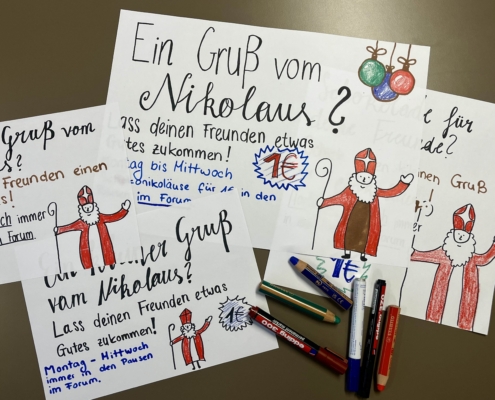 Ein Gruß vom
Nikolaus?
Lass deinen Freunden etwas
Gutes zukommen!
bis Mittwoch
für 1€ in den
im Forum
1€
Gruß vom
s?
Freunden einen
s!
immer
Forum
für
de?
nen Gruß
1€
Gruß
vom Nikolaus?
Lass deinen Freunden etwas
Gutes zukommen!
1€
Montag - Mittwoch
immer in den Pausen
im Forum.
edding 300